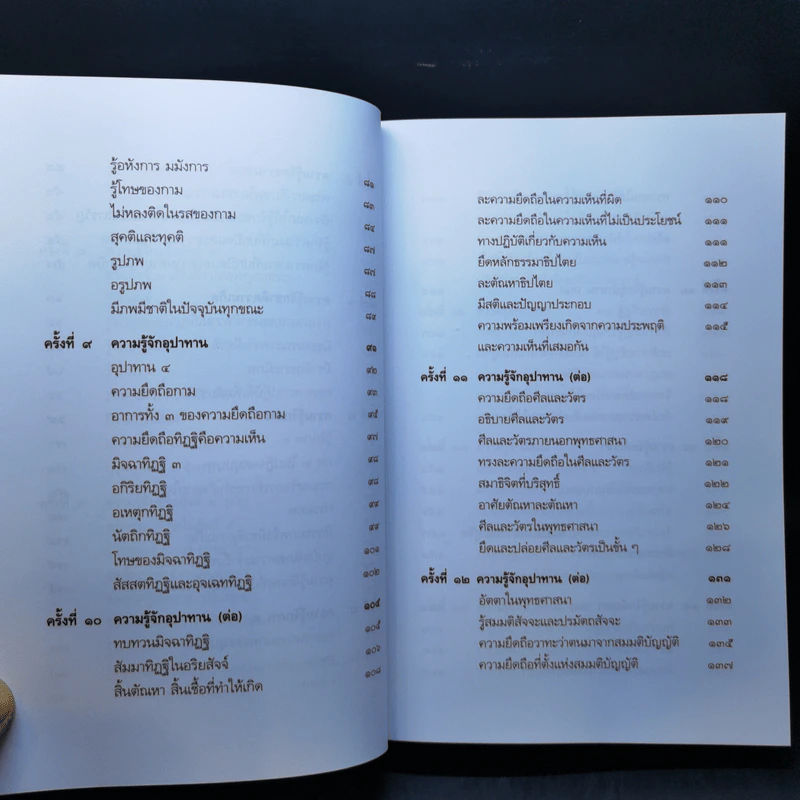 รู้อหังการ มมังการ ๘๑
รู้โทษของกาม ๘๓
ไม่หลงติดในรสของกาม ๘๔
สุคติและทุคติ ๘๗
รูปภพ ๘๗
อรูปภพ ๘๘
มีภพมีชาติในปัจจุบันทุกขณะ ๘๙
ครั้งที่ ๙ ความรู้จักอุปาทาน ๙๑
อุปาทาน ๔ ๙๒
ความยึดถือกาม ๙๓
อาการทั้ง ๓ ของความยึดถือกาม ๙๕
ความยึดถือทิฏฐิคือความเห็น ๙๗
มิจฉาทิฏฐิ ๓ ๙๘
อกิริยทิฏฐิ ๙๘
อเหตุกทิฏฐิ ๙๙
นัตถิกทิฏฐิ ๙๙
โทษของมิจฉาทิฏฐิ ๑๐๑
สัสสตทิฏฐิและอุจเฉททิฏฐิ ๑๐๒
ครั้งที่ ๑๐ ความรู้จักอุปาทาน (ต่อ) ๑๐๔
ทบทวนมิจฉาทิฏฐิ ๑๐๕
สัมมาทิฏฐิในอริยสัจจ์ ๑๐๖
สิ้นตัณหา สิ้นเชื้อที่ทำให้เกิด ๑๐๘
ละความยึดถือในความเห็นที่ผิด ๑๑๐
ละความยึดถือในความเห็นที่ไม่เป็นประโยชน์ ๑๑๑
ทางปฏิบัติเกี่ยวกับความเห็น ๑๑๑
ยึดหลักธรรมาธิปไตย ๑๑๒
ละตัณหาธิปไตย ๑๑๓
มีสติและปัญญาประกอบ ๑๑๔
ความพร้อมเพรียงเกิดจากความประพฤติ ๑๑๕
และความเห็นที่เสมอกัน
ครั้งที่ ๑๑ ความรู้จักอุปาทาน (ต่อ) ๑๑๘
ความยึดถือศีลและวัตร ๑๑๘
อธิบายศีลและวัตร ๑๑๙
ศีลและวัตรภายนอกพุทธศาสนา ๑๒๐
ทรงละความยึดถือในศีลและวัตร ๑๒๑
สมาธิจิตที่บริสุทธิ์ ๑๒๒
อาศัยตัณหาละตัณหา ๑๒๔
ศีลและวัตรในพุทธศาสนา ๑๒๖
ยึดและปล่อยศีลและวัตรเป็นชั้น ๆ ๑๒๘
ครั้งที่ ๑๒ ความรู้จักอุปาทาน (ต่อ) ๑๓๑
อัตตาในพุทธศาสนา ๑๓๒
รู้สมมติสัจจะและปรมัตถสัจจะ ๑๓๓
ความยึดถือวาทะว่าตนมาจากสมมติบัญญัติ ๑๓๕
ความยึดถือที่ตั้งแห่งสมมติบัญญัติ ๑๓๗